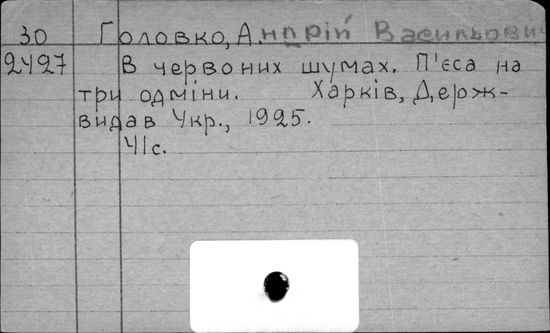 30 Головко, Андрій Васильович
2427 В червоних шумах. П'єса на
три одміни. Харків, Держ-
видав Укр., 1925.
41с.